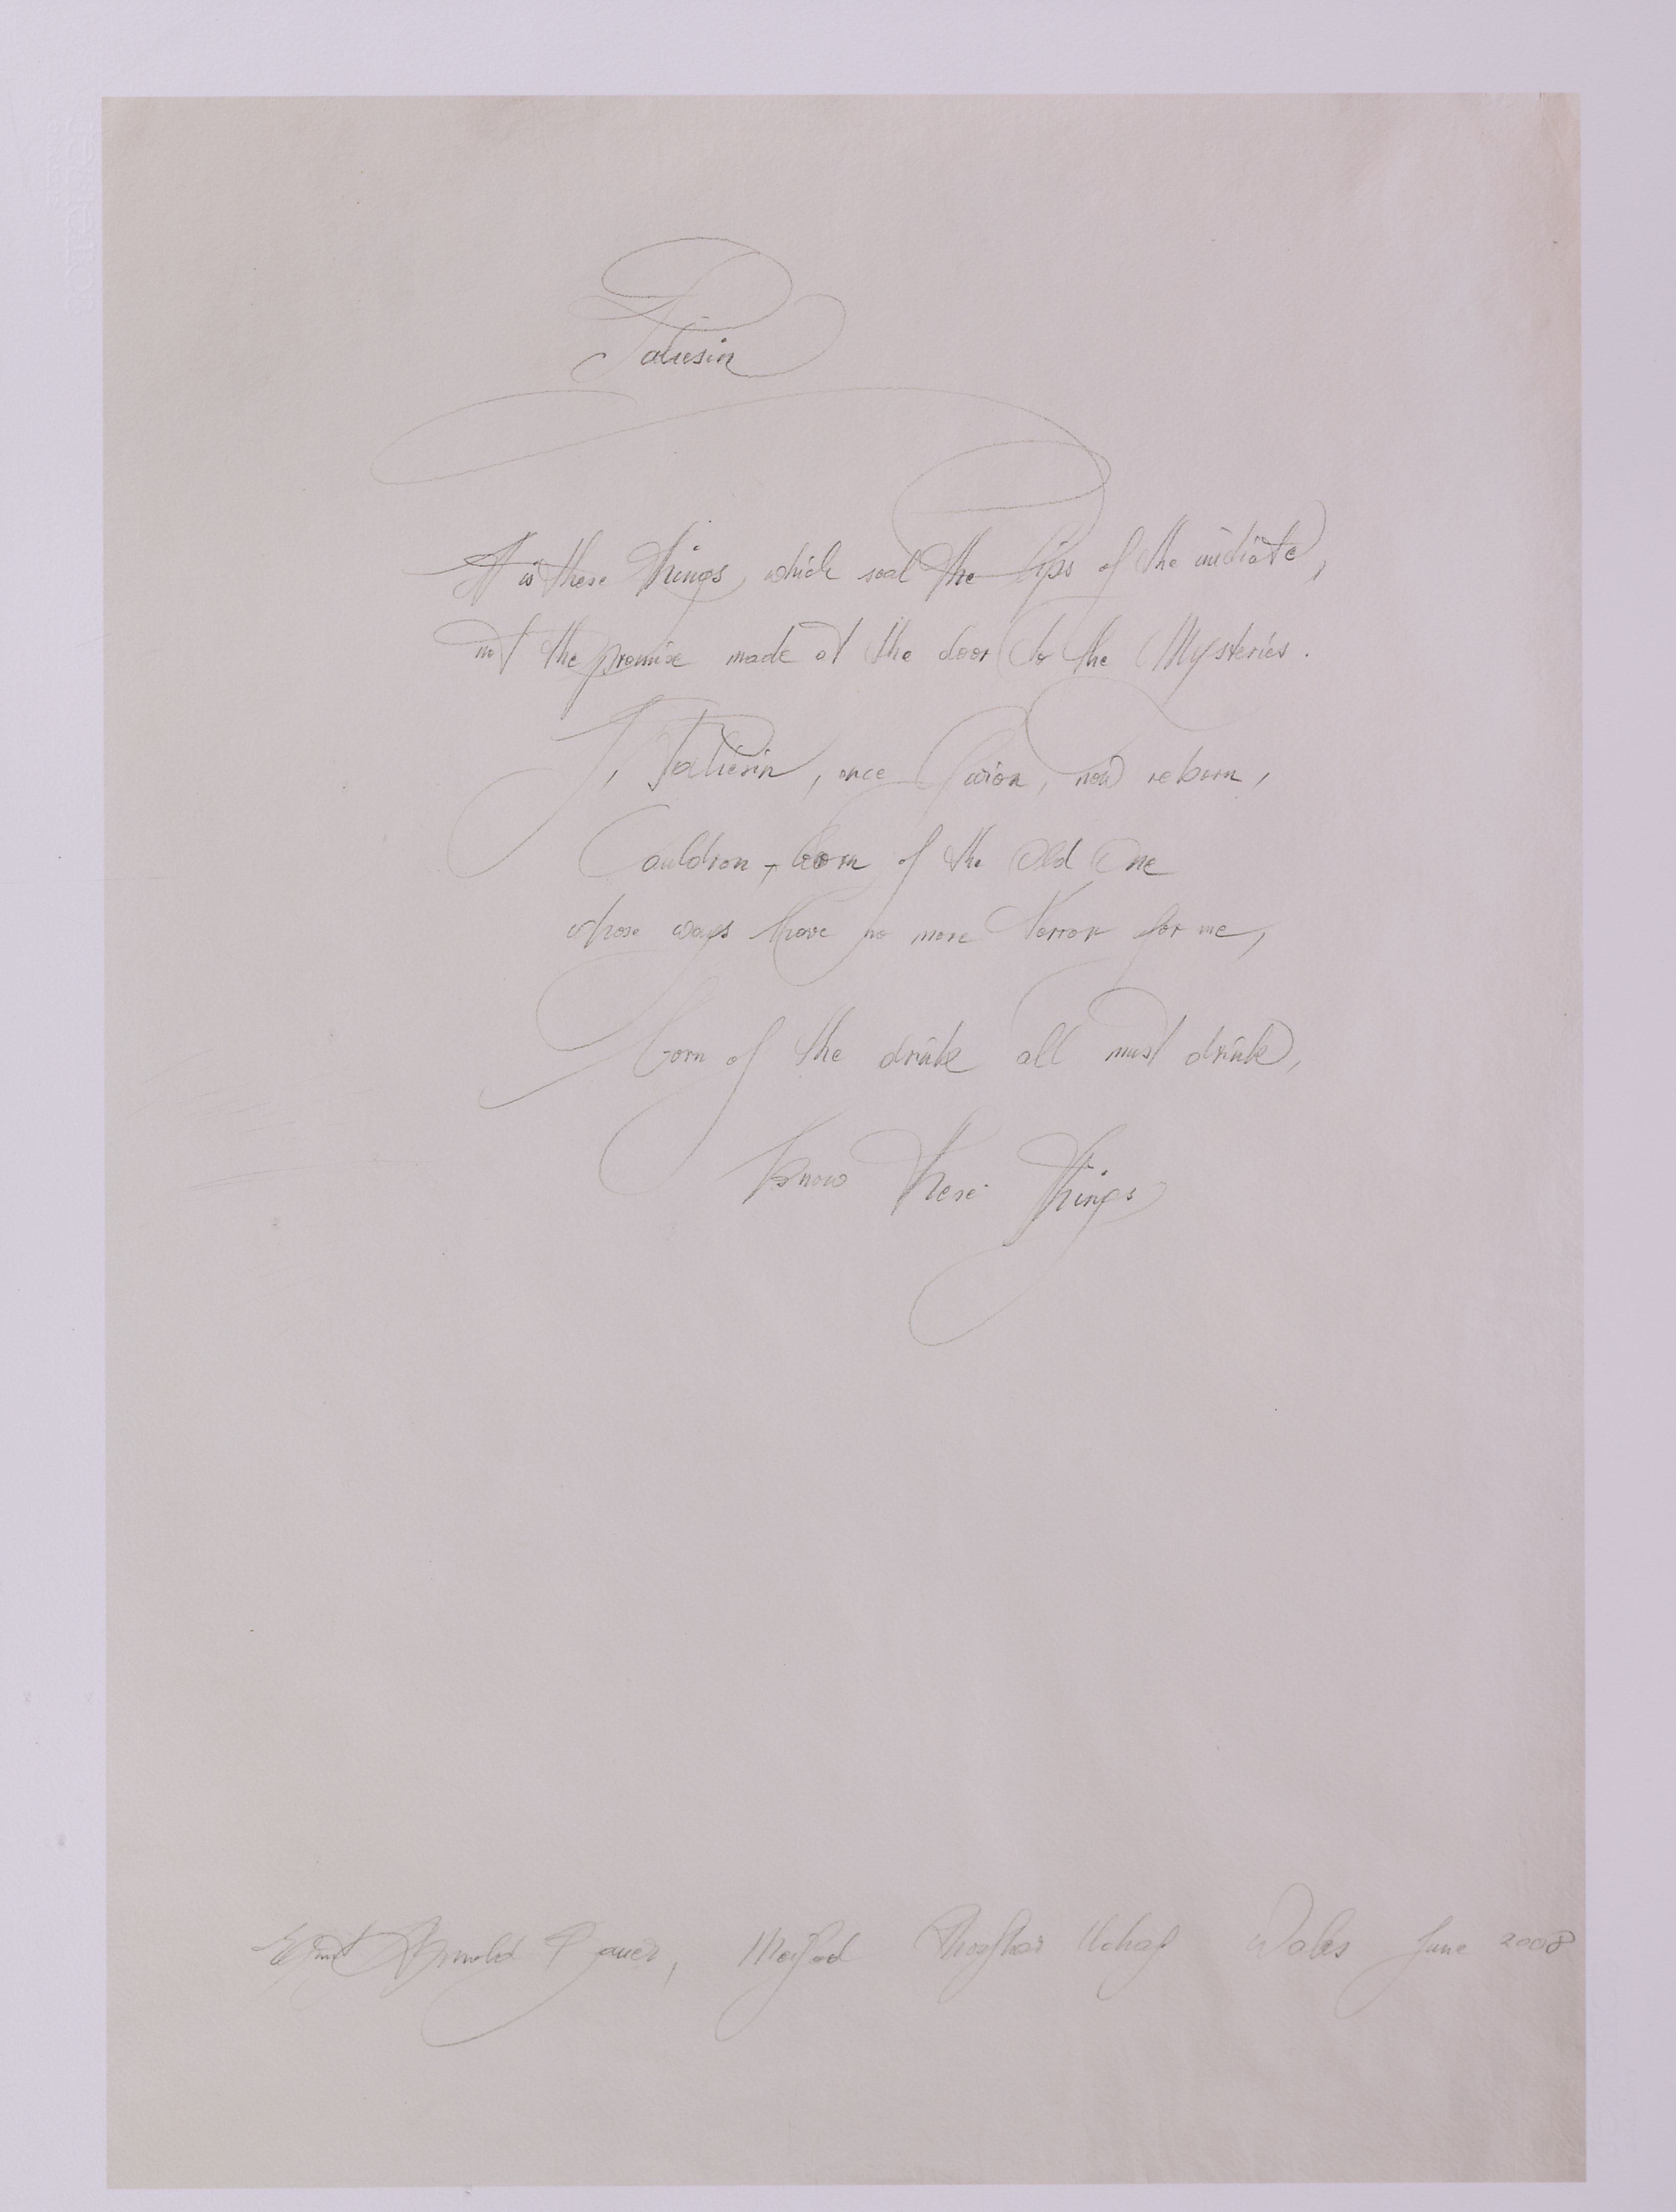 Taliesin
It is these things, which seal the lips of the initiate,
not the promise made at the door to the Mysteries.
I, Taliesin, once Gwion, now reborn,
Cauldron-born of the Old One
whose ways have no more terror for me,
born of the drink all must drink,
know these things
Ernst Arnold Bauer, Meifod Wales June 2008